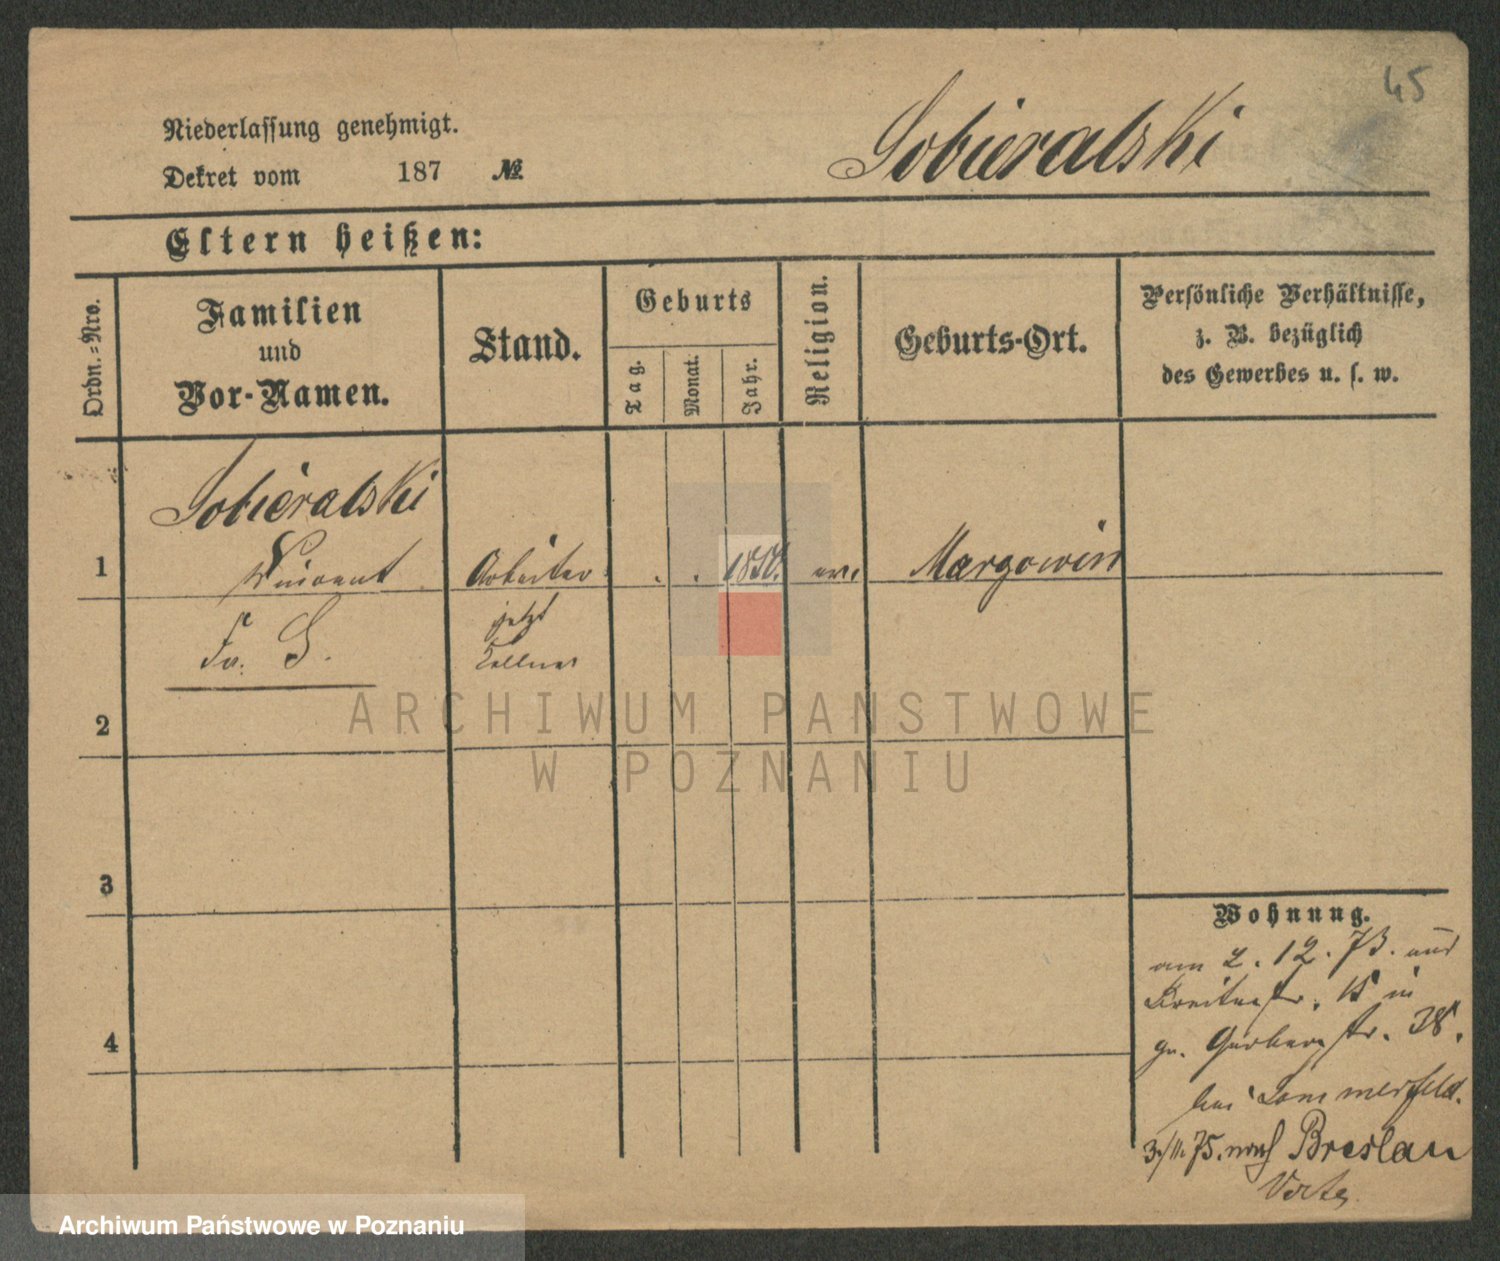 45
Niederlassung genehmigt.
Sobieralski
Dekret vom 187 №
Eltern heißen:
Ordn.-Nro.
Familien
und
Vor-Namen.
Stand.
Geburts
Tag.
Monat.
Jahr.
Religion.
Geburts-Ort.
Persönliche Verhältnisse,
z. B. bezüglich
des Gewerbes u. s. w.
Sobieralski
1 Vincent Arbeiter . . Margowin
Fr. S. jetzt
Kellner
2
ARCHIWUM PAŃSTWOWE
W POZNANIU
3
Wohnung.
am 2. 12. 73. aus
Breitestr. 15 in
gr. Gerberstr. 38.
bei Sommerfeld.
4
3/11. 75. nach Breslau
Archiwum Państwowe w Poznaniu